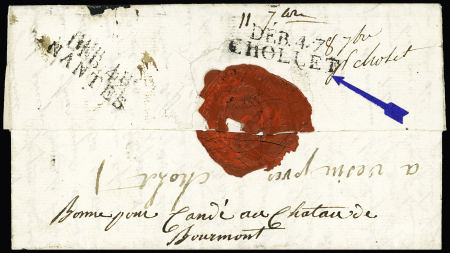 11 7bre
DEB. 4-78 7bre
CHOLLET
p cholet
DEB. 48.
NANTES
a vezin pres
cholet
Bonne pour Candé au Chatau de
Bourmont